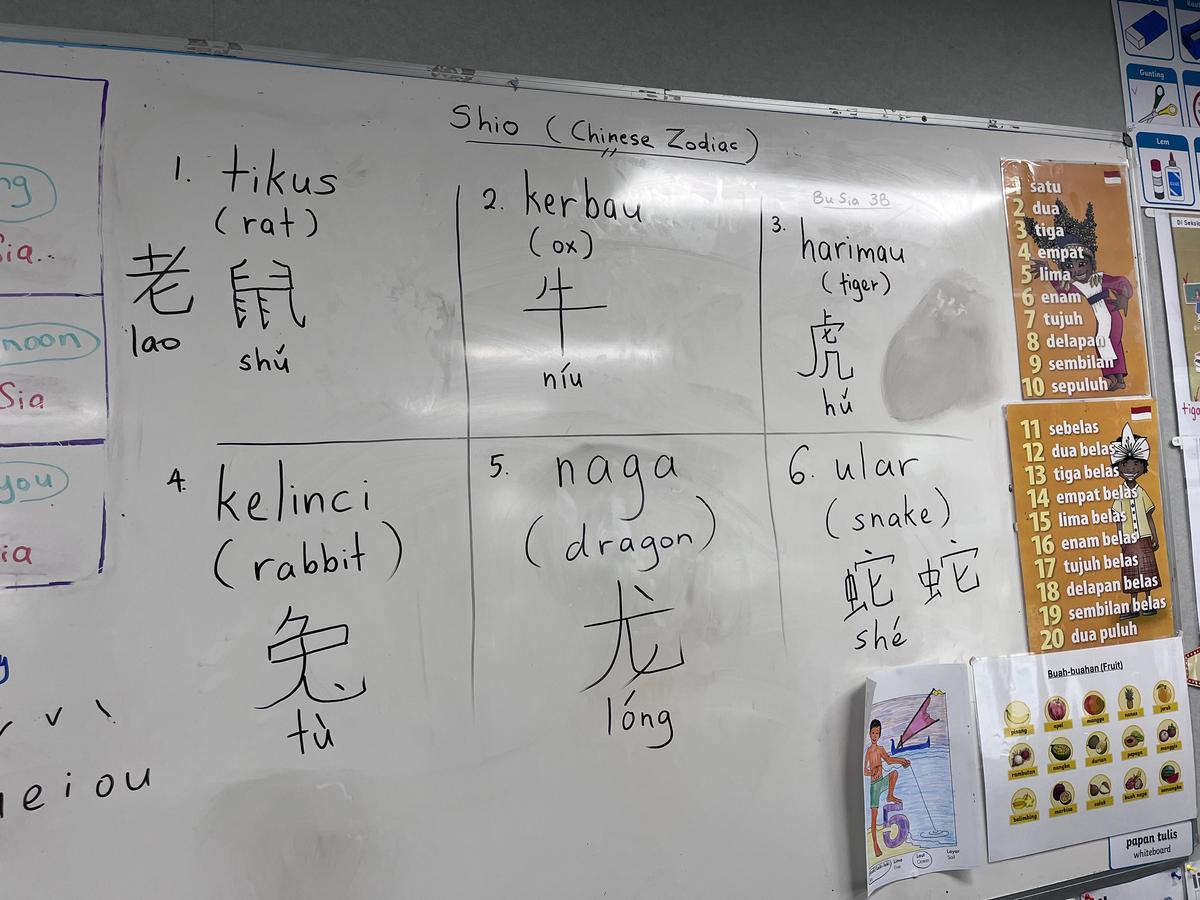 Shio (Chinese Zodiac)
1. tikus
(rat)
老 鼠
lao shǔ
2. kerbau
(ox)
牛
níu
Bu Sia 3B
3. harimau
(tiger)
虎
hǔ
4. kelinci
(rabbit)
兔
tù
5. naga
(dragon)
龙
lóng
6. ular
(snake)
蛇 蛇
shé
ng
Sia..
noon
Sia
you
ia
e i o u
Gunting
Lem
1 satu
2 dua
3 tiga
4 empat
5 lima
6 enam
7 tujuh
8 delapan
9 sembilan
10 sepuluh
11 sebelas
12 dua belas
13 tiga belas
14 empat belas
15 lima belas
16 enam belas
17 tujuh belas
18 delapan belas
19 sembilan belas
20 dua puluh
Buah-buahan (Fruit)
pisang apel mangga nanas jeruk
rambutan nangka durian pepaya manggis
belimbing markisa salak buah naga semangka
5
Laut
Layar
papan tulis
whiteboard